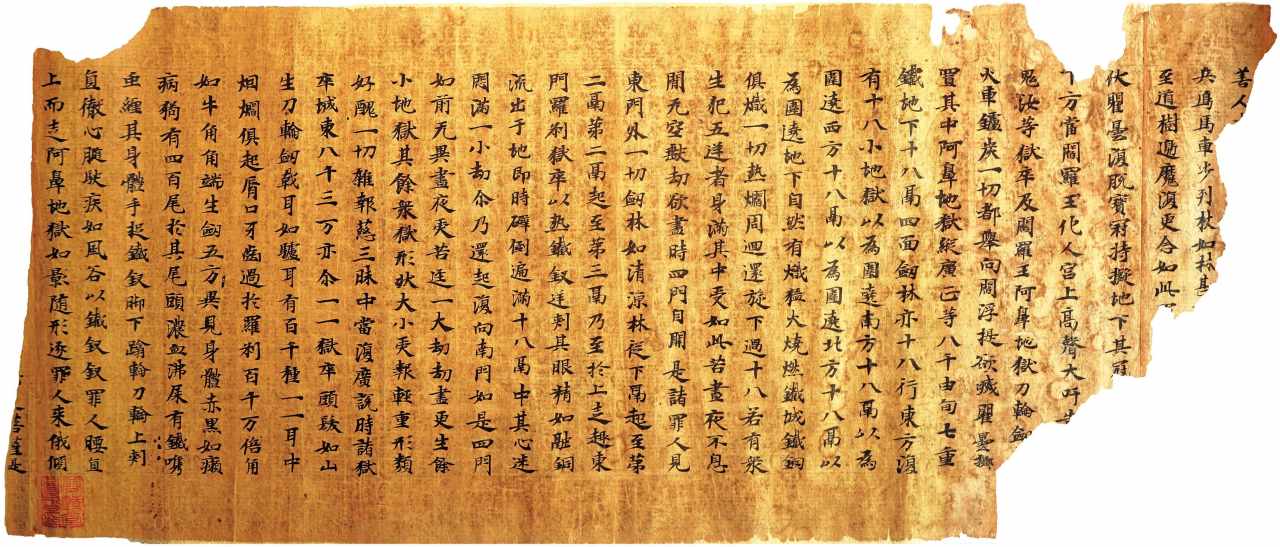 善人
兵象馬車步列杖如林
至道樹邊魔復更念如此
伏瞿曇復脫寶冠持擬地下其冠
下方當閻羅王化人宮上高聲大呼
鬼汝等獄卒及閻羅王阿鼻地獄刀輪劒
火車鑪炭一切都舉向閻浮提欲滅瞿曇
置其中阿鼻地獄縱廣正等八千由旬七重
鐵地下十八鬲四面劒林亦十八行東方復
有十八小地獄以為圍遶南方十八鬲以為
圍遶西方十八鬲以為圍遶北方十八鬲以
為圍遶地下自然有熾猛大燒燃鐵城鐵網
俱熾一切熱爓周迴還旋下過十八若有衆
生犯五逆者身滿其中受如此苦晝夜不息
聞无空獸劫欲盡時四門自開是諸罪人見
東門外一切劒林如清涼林從下鬲起至第
二鬲第二鬲起至第三鬲乃至於上走趣東
門羅刹獄卒以熱鐵釵逆刺其眼精如融銅
流出于地即時躃倒遍滿十八鬲中其心迷
悶滿一小劫尒乃還起復向南門如是四門
如前无異晝夜受苦逕一大劫劫盡更生餘
小地獄其餘衆獄形狀大小受報輕重形類
好醜一切雜報慈三昧中當復廣說時諸獄
卒城東八千三万亦尒一一獄卒頭髮如山
生刀輪劒戟耳如驢耳有百千種一一耳中
烟爓俱起脣口牙齒過於羅刹百千万倍角
如牛角角端生劒五方異見身體赤黑如癩
病狗有四百尾於其尾頭濃血沸屎有鐵嘴
虫纏其身體手捉鐵釵脚下踰輪刀輪上刺
直徹心髓駃疾如風谷以鐵釵釵罪人腰直
上而走阿鼻地獄如影随形逐罪人来俄傾
菩薩